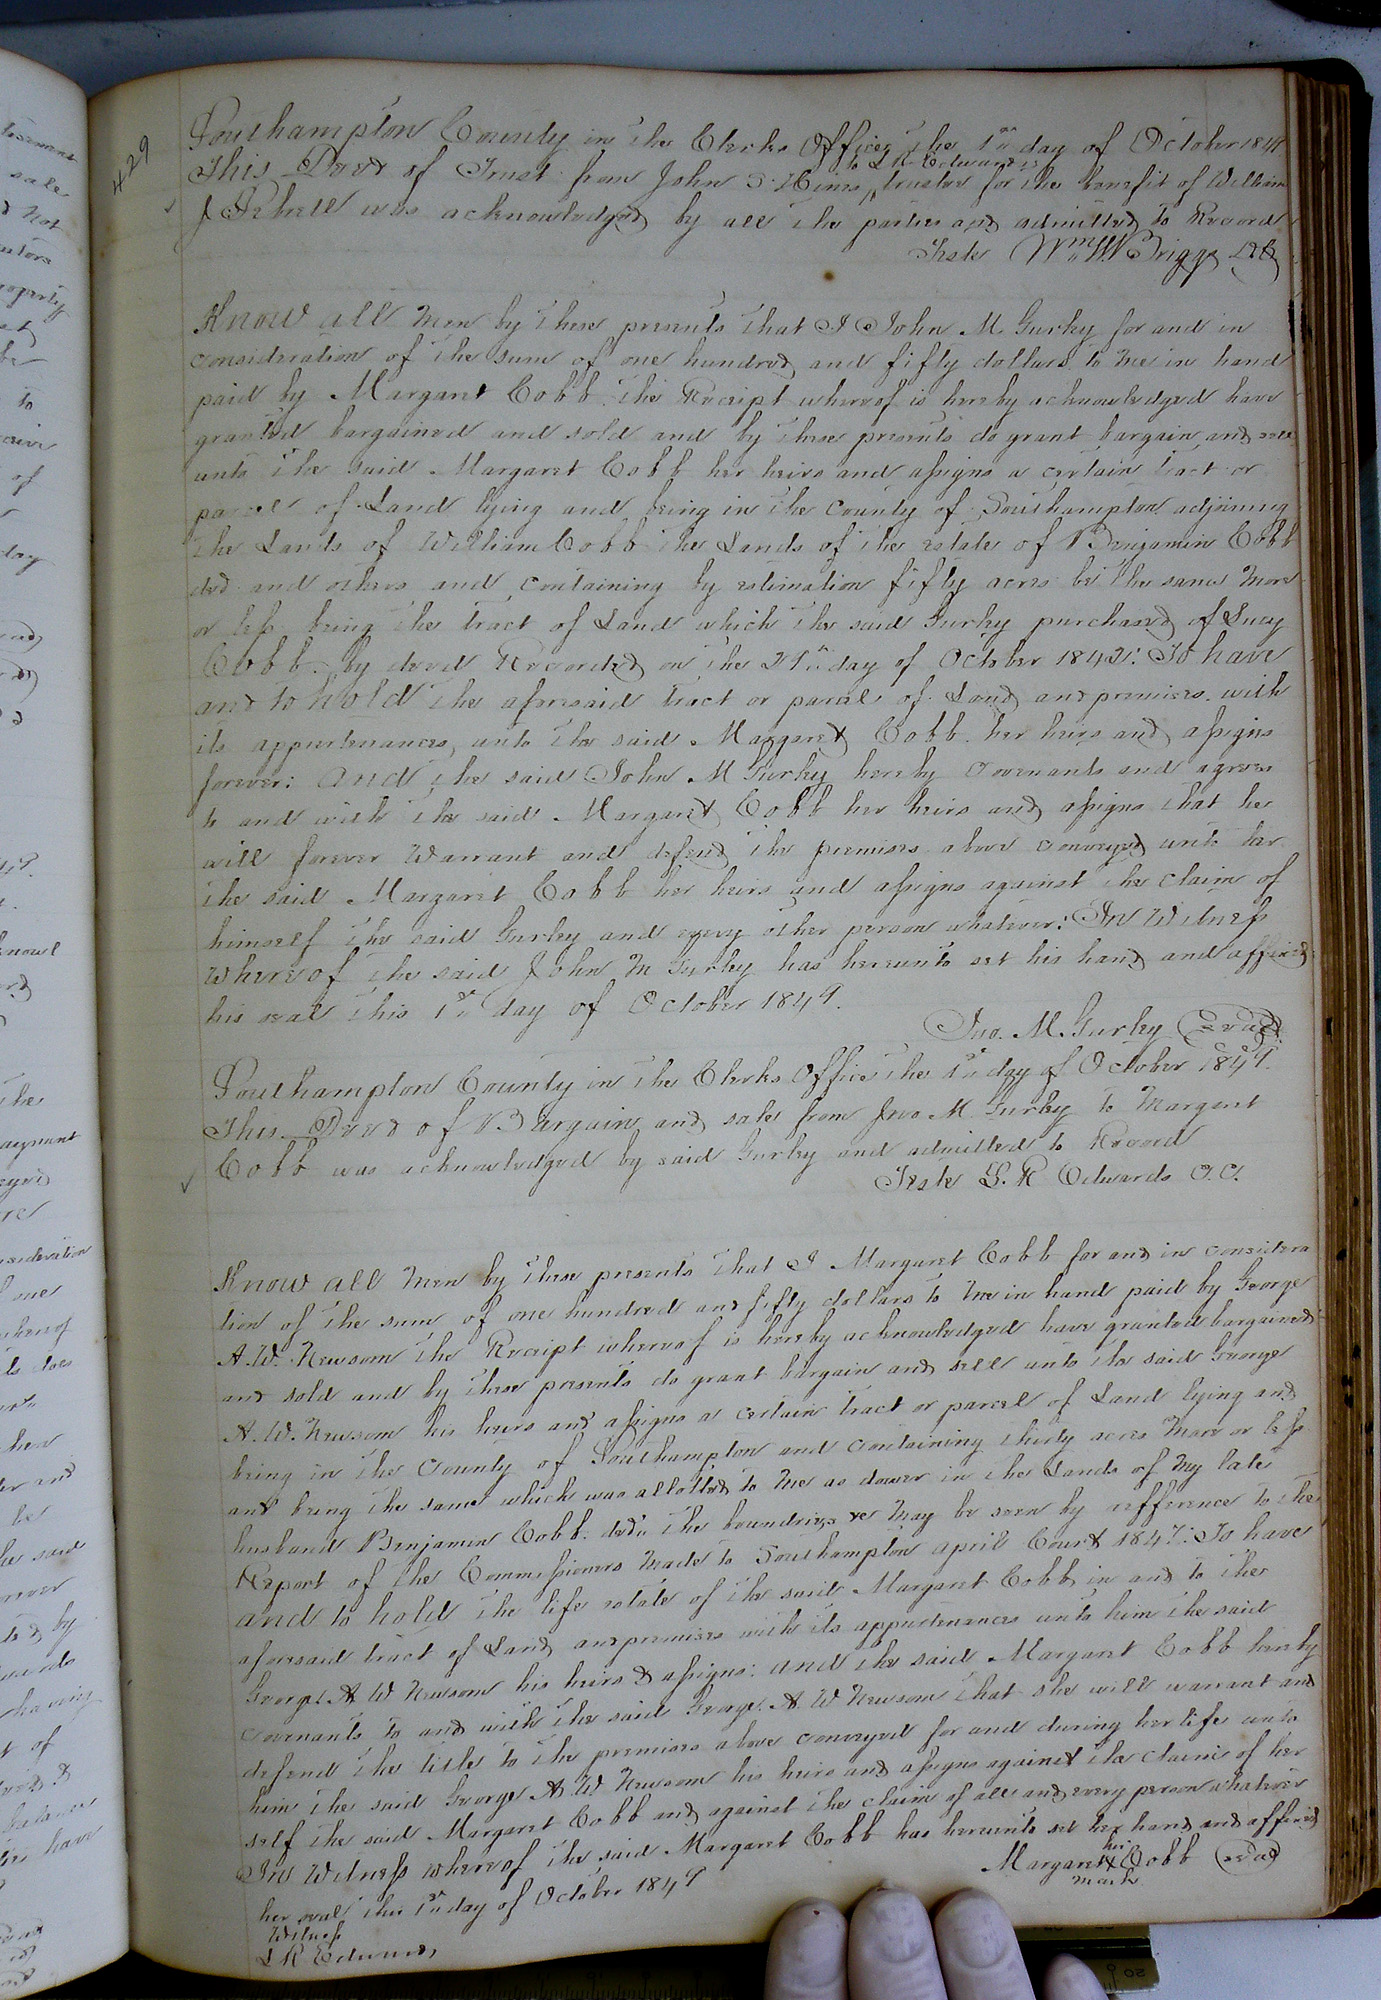 429
Southampton County in the Clerks Office, the 1st day of October 1849
to L R Edwards
This Deed of Trust from John D. Hines trustee for the benefit of William
J Pebell was acknowledged by all the parties and admitted to Record
Teste Wm W Briggs
Know all men by these presents that I John M. Gurley for and in
consideration of the sum of one hundred and fifty dollars to me in hand
paid by Margaret Cobb the Receipt whereof is hereby acknowledged have
granted bargained and sold and by these presents do grant bargain and sell
unto the said Margaret Cobb her heirs and assigns a certain tract or
parcel of Land lying and being in the County of Southampton adjoining
the Lands of William Cobb the Lands of the estate of Benjamin Cobb
decd and others and containing by estimation fifty acres be the same more
or less being the tract of Land which the said Gurley purchased of Lucy
Cobb by deed Recorded on the 21st day of October 1842: To have
and to hold the aforesaid tract or parcel of Land and premises with
its appurtenances, unto the said Margaret Cobb her heirs and assigns
forever: And the said John M Gurley hereby covenants and agrees
to and with the said Margaret Cobb her heirs and assigns that he
will forever Warrant and defend the premises above conveyed unto her
the said Margaret Cobb her heirs and assigns against the claim of
himself the said Gurley and every other person whatever: In Witness
whereof the said John M Gurley has hereunto set his hand and affixed
his seal this 1st day of October 1849.
Jno. M. Gurley (Seal)
Southampton County in the Clerks Office the 1st day of October 1849.
This Deed of Bargain and sale from Jno M. Gurley to Margaret
Cobb was acknowledged by said Gurley and admitted to Record
Teste L. R Edwards C.C.
Know all men by these presents that I Margaret Cobb for and in considera
tion of the sum of one hundred and fifty dollars to me in hand paid by George
A. W. Newsom the Receipt whereof is hereby acknowledged have granted bargained
and sold and by these presents do grant bargain and sell unto the said George
A. W. Newsom his heirs and assigns a certain tract or parcel of Land lying and
being in the County of Southampton and containing thirty acres more or less
and being the same which was allotted to me as dower in the Lands of my late
husband Benjamin Cobb decd the boundries &c may be seen by refference to the
Report of the Commissioners made to Southampton April Court 1847: To have
and to hold the life estate of the said Margaret Cobb in and to the
aforesaid tract of Land and premises with its appurtenances unto him the said
George A W Newsom his heirs & assigns: And the said Margaret Cobb hereby
covenants to and with the said George A. W Newsom that she will warrant and
defend the title to the premises above conveyed for and during her life unto
him the said George A W Newsom his heirs and assigns against the claim of her
self the said Margaret Cobb and against the claim of all and every person whatever
In Witness whereof the said Margaret Cobb has hereunto set her hand and affixed
her seal this 1st day of October 1849
her
Margaret X Cobb (Seal)
mark
Witness
L R Edwards